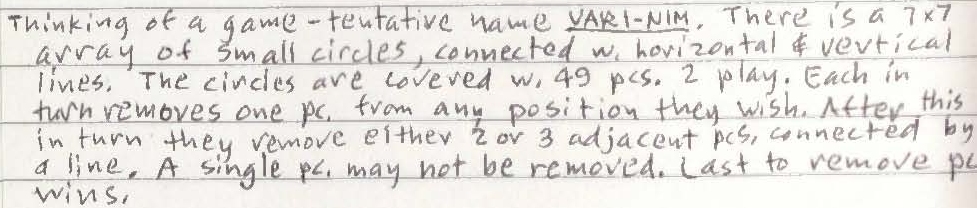 Thinking of a game - tentative name VARI-NIM. There is a 7x7
array of small circles, connected w. horizontal & vertical
lines. The circles are covered w. 49 pcs. 2 play. Each in
turn removes one pc. from any position they wish. After this
in turn they remove either 2 or 3 adjacent pcs, connected by
a line. A single pc. may not be removed. Last to remove pc
wins.